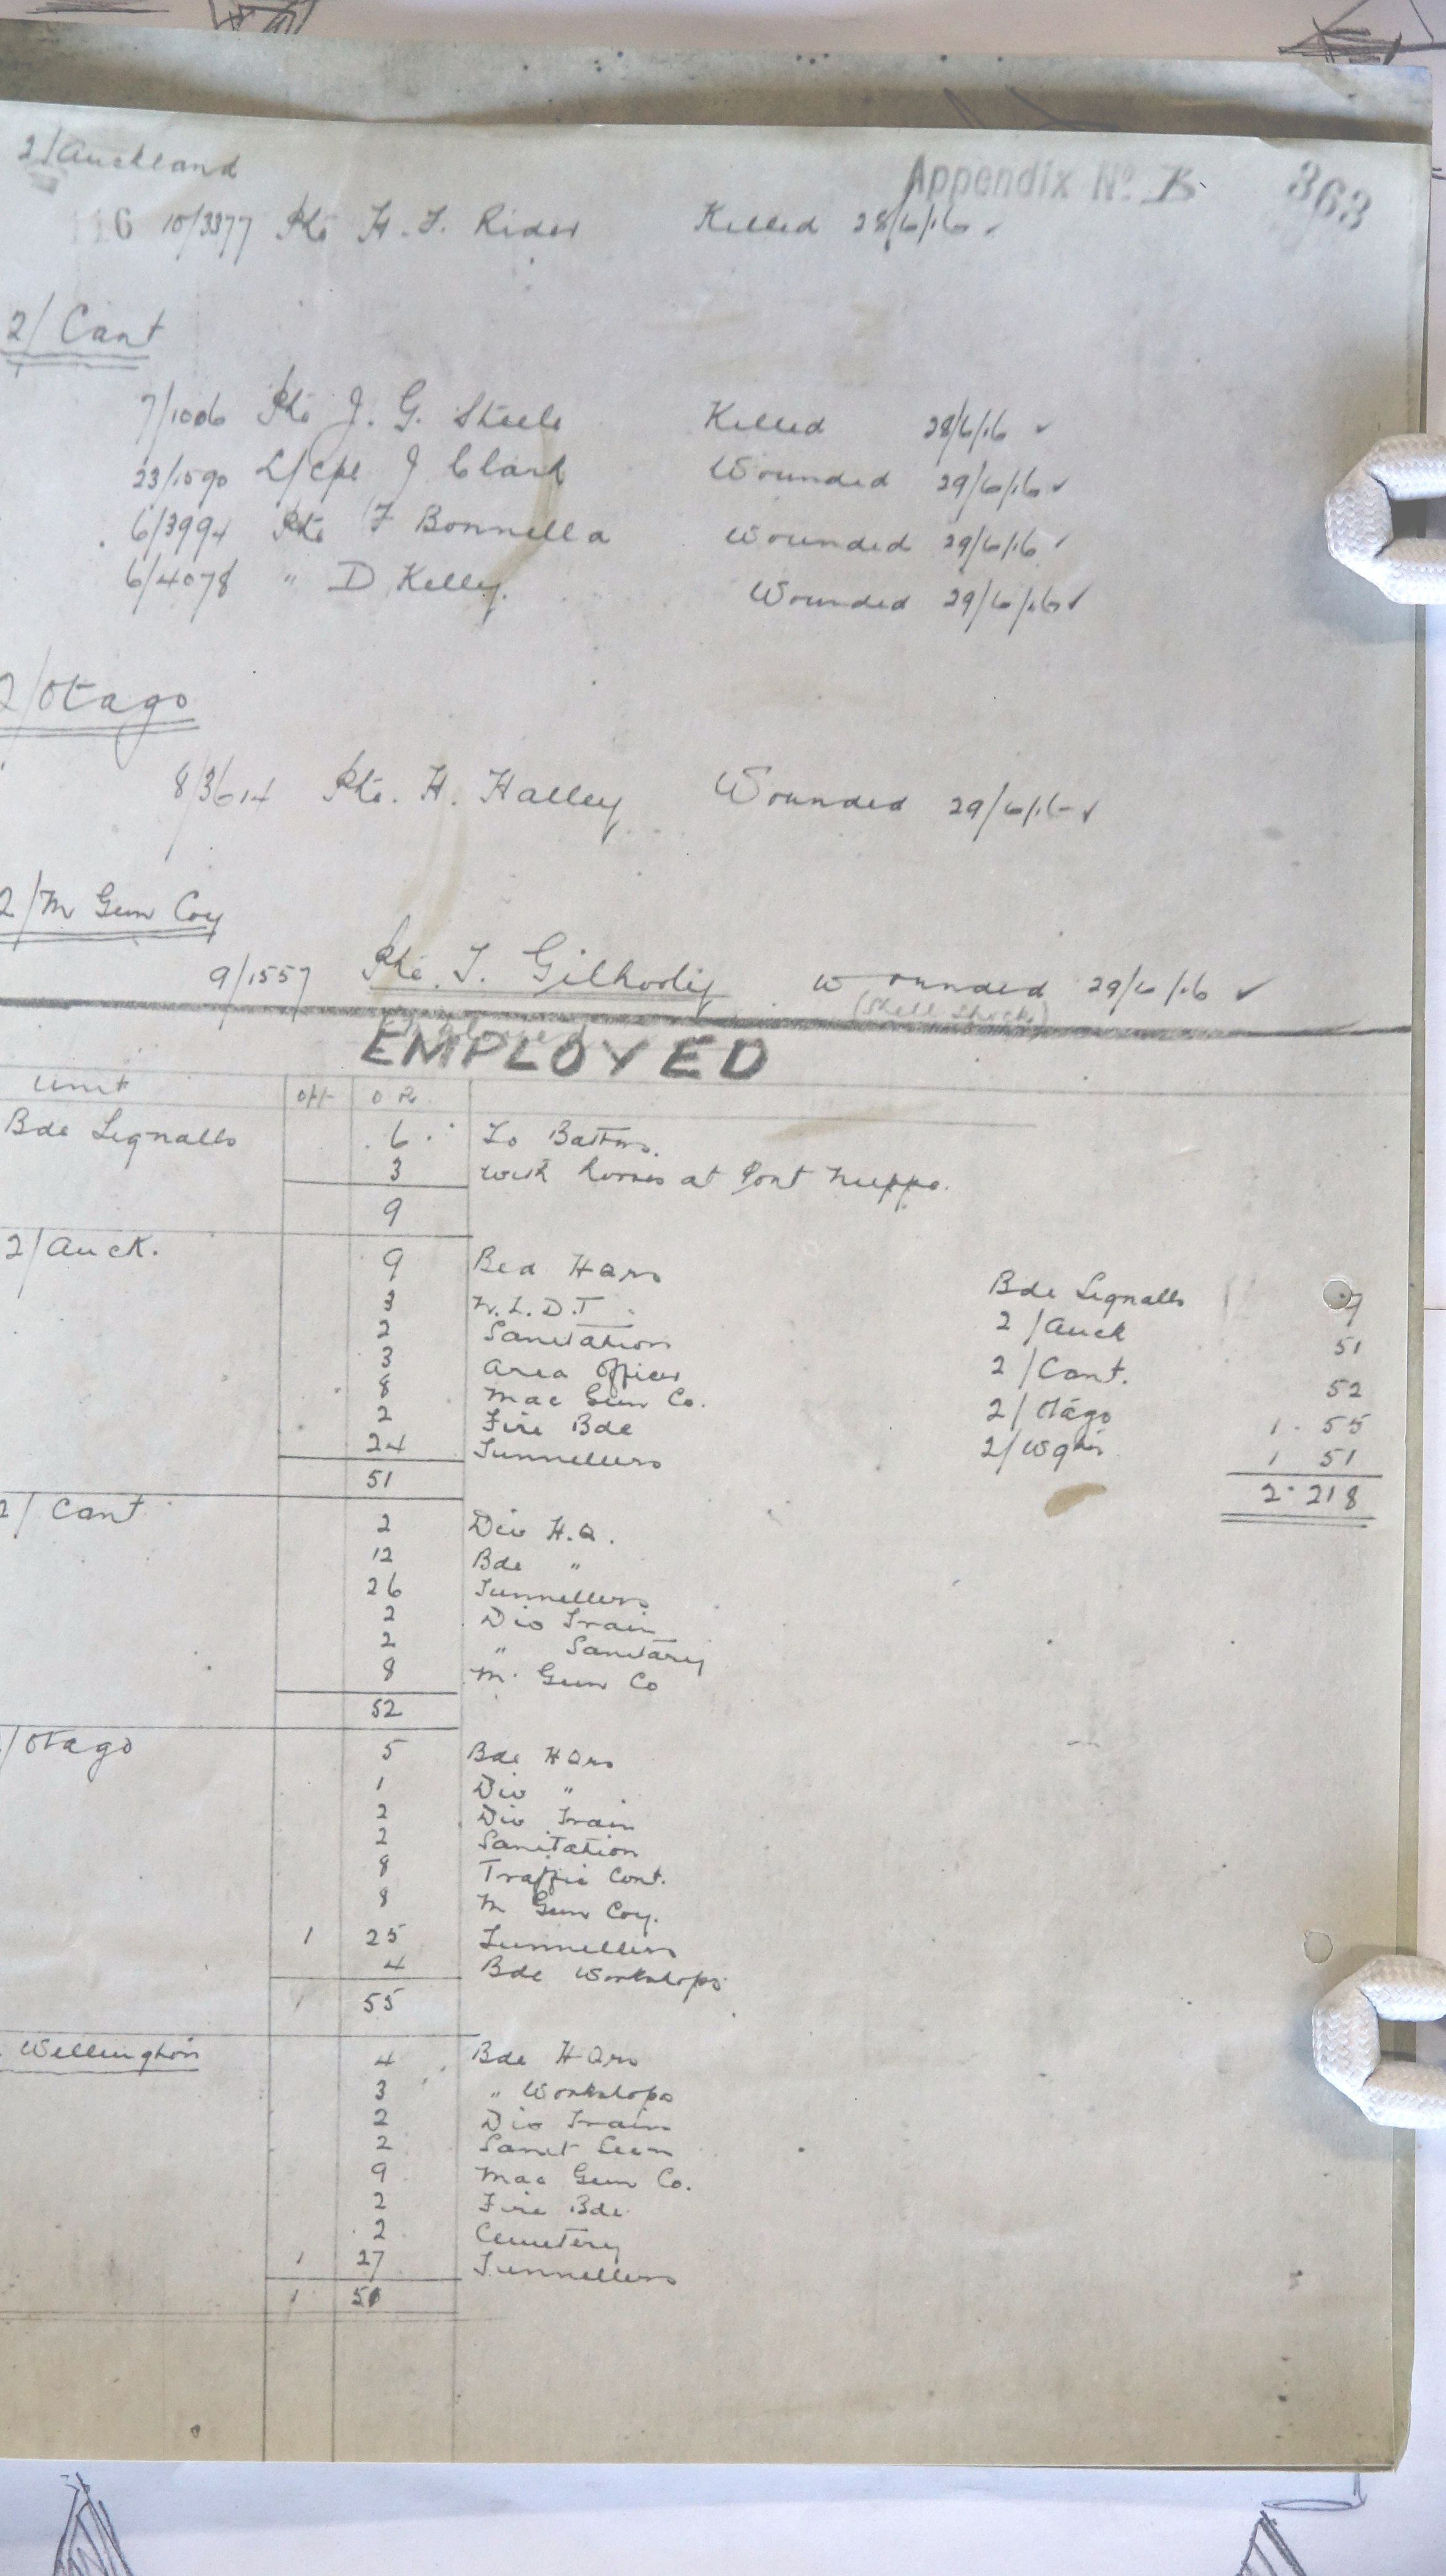 2/Auckland
Appendix No. B 363
116 10/3377 Pte H. F. Rider Killed 28/6/16 ✓
2/ Cant
7/1006 Pte J. G. Steele Killed 28/6/16 ✓
23/1590 L/Cpl J Clark Wounded 29/6/16 ✓
6/3994 Pte F Bonnella Wounded 29/6/16 ✓
6/4078 " D Kelly. Wounded 29/6/16 ✓
2/Otago
8/3614 Pte. H. Halley Wounded 29/6/16 ✓
2/M Gun Coy
9/1557 Pte. T. Gilhooly wounded 29/6/16 ✓
(Shell Shock)
EMPLOYED
Unit Off O R.
Bde Signalls 6 To Battns.
3 with horses at Pont Nieppe.
9
2/Auck. 9 Bed HQrs
3 N.Z.D.T
2 Sanitation
3 Area Officer
8 Mac Gun Co.
2 Fire Bde
24 Tunnellers
51
Bde Signalls 9
2/Auck 51
2/Cant. 52
2/Otago 1. 55
2/Wgtn 1 51
2. 218
2/ Cant 2 Div H.Q.
12 Bde "
26 Tunnellers
2 Div Train
2 " Sanitary
8 M. Gun Co
52
/Otago 5 Bde HQrs
1 Div "
2 Div Train
2 Sanitation
8 Traffic Cont.
8 M Gun Coy.
1 25 Tunnellers
4 Bde Workshops
1 55
Wellington 4 Bde HQrs
3 " Workshops
2 Div Train
2 Sanit Secn
9 Mac Gun Co.
2 Fire Bde
2 Cemetery
1 27 Tunnellers
1 51